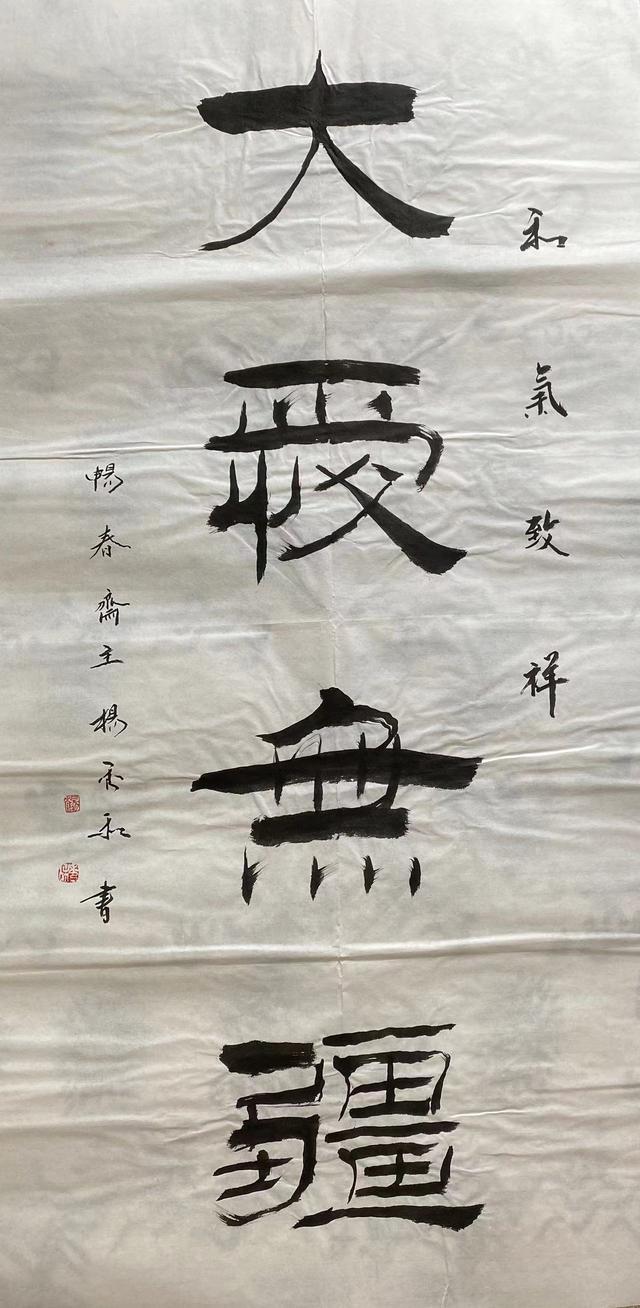 和氣致祥
大愛無疆
暢春齋主楊雲和書